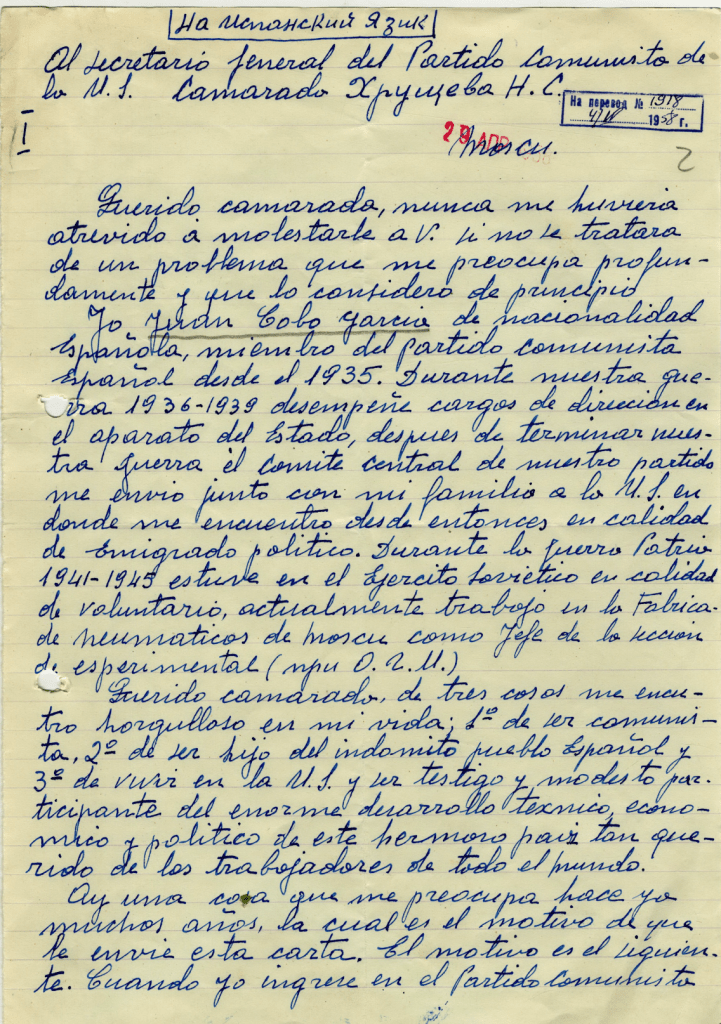 На Испанский Язик
Al secretario general del Partido Comunista de
la U.S. Camarada Хрущева Н.С.
На перевод № 1918
4/IV 1958 г.
I
29 АПР
Moscu.
2
Querido camarada, nunca me huviera
atrevido a molestarle a V. si no se tratara
de un problema que me preocupa profun-
damente y que lo considero de principio
Yo Juan Cobo Garcia de nacionalidad
Española, miembro del Partido Comunista
Español desde el 1935. Durante nuestra gue-
rra 1936-1939 desempeñe cargos de direccion en
el aparato del Estado, despues de terminar nues-
tra guerra el Comite Central de nuestro partido
me envio junto con mi familia a la U.S. en
donde me encuentro desde entonces en calidad
de Emigrado politico. Durante la Guerra Patria
1941-1945 estuve en el Ejercito Sovietico en calidad
de voluntario, actualmente trabajo en la Fabrica-
de neumaticos de Moscu como Jefe de la seccion
de esperimental (при О.Г.М.)
Querido camarada, de tres cosas me encue-
tro horgulloso en mi vida; 1º de ser comunis-
ta, 2º de ser hijo del indomito pueblo Español y
3º de vivir en la U.S. y ser testigo y modesto par-
ticipante del enorme desarrollo texnico, econo-
mico y politico de este hermoso paiz tan que-
rido de los trabajadores de todo el mundo.
Ay una cosa que me preocupa hace ya
muchos años, la cual es el motivo de que
le envie esta carta. El motivo es el siguien-
te. Cuando yo ingrese en el Partido Comunista